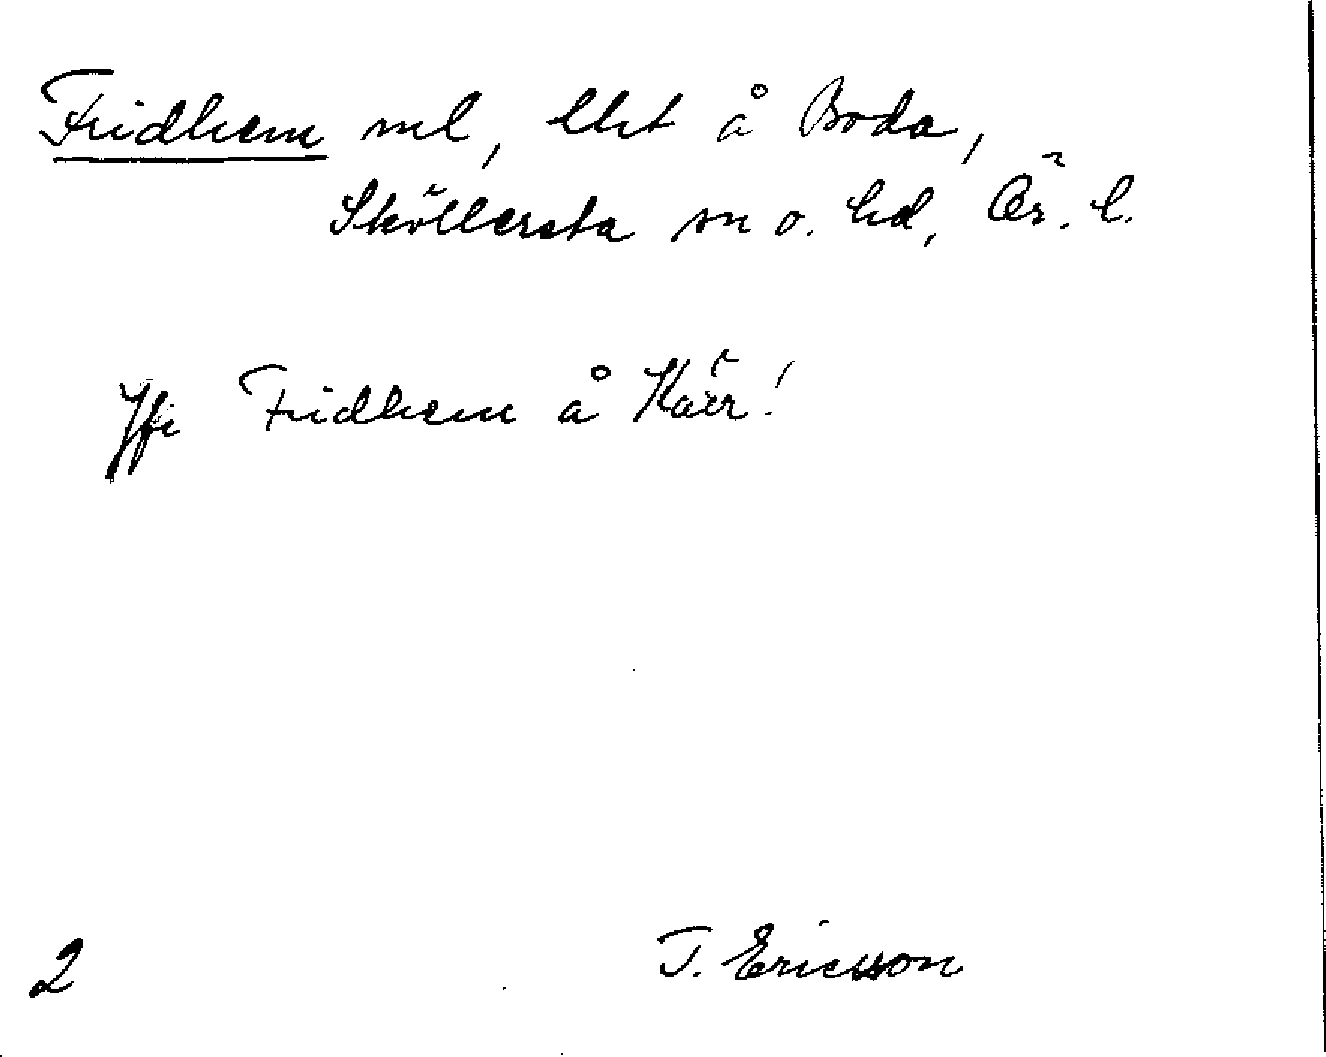 Fridhem ml, lht å Boda,
Sköllersta sn o. hd, Ör. l.
Jfr Fridhem å Kärr!
2 T. Ericsson